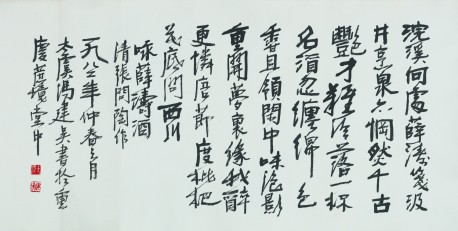 浣溪何處薛濤箋汲
井烹泉亦惘然千古
艷才難冷落一杯
名酒忽纏綿色
香且領閑中味泡影
重開夢裏緣我醉
更憐唐節度枇杷
花底問西川
咏薛濤酒
清張問陶作
一九八三年仲春三月
馮建吳書於重
慶堂中